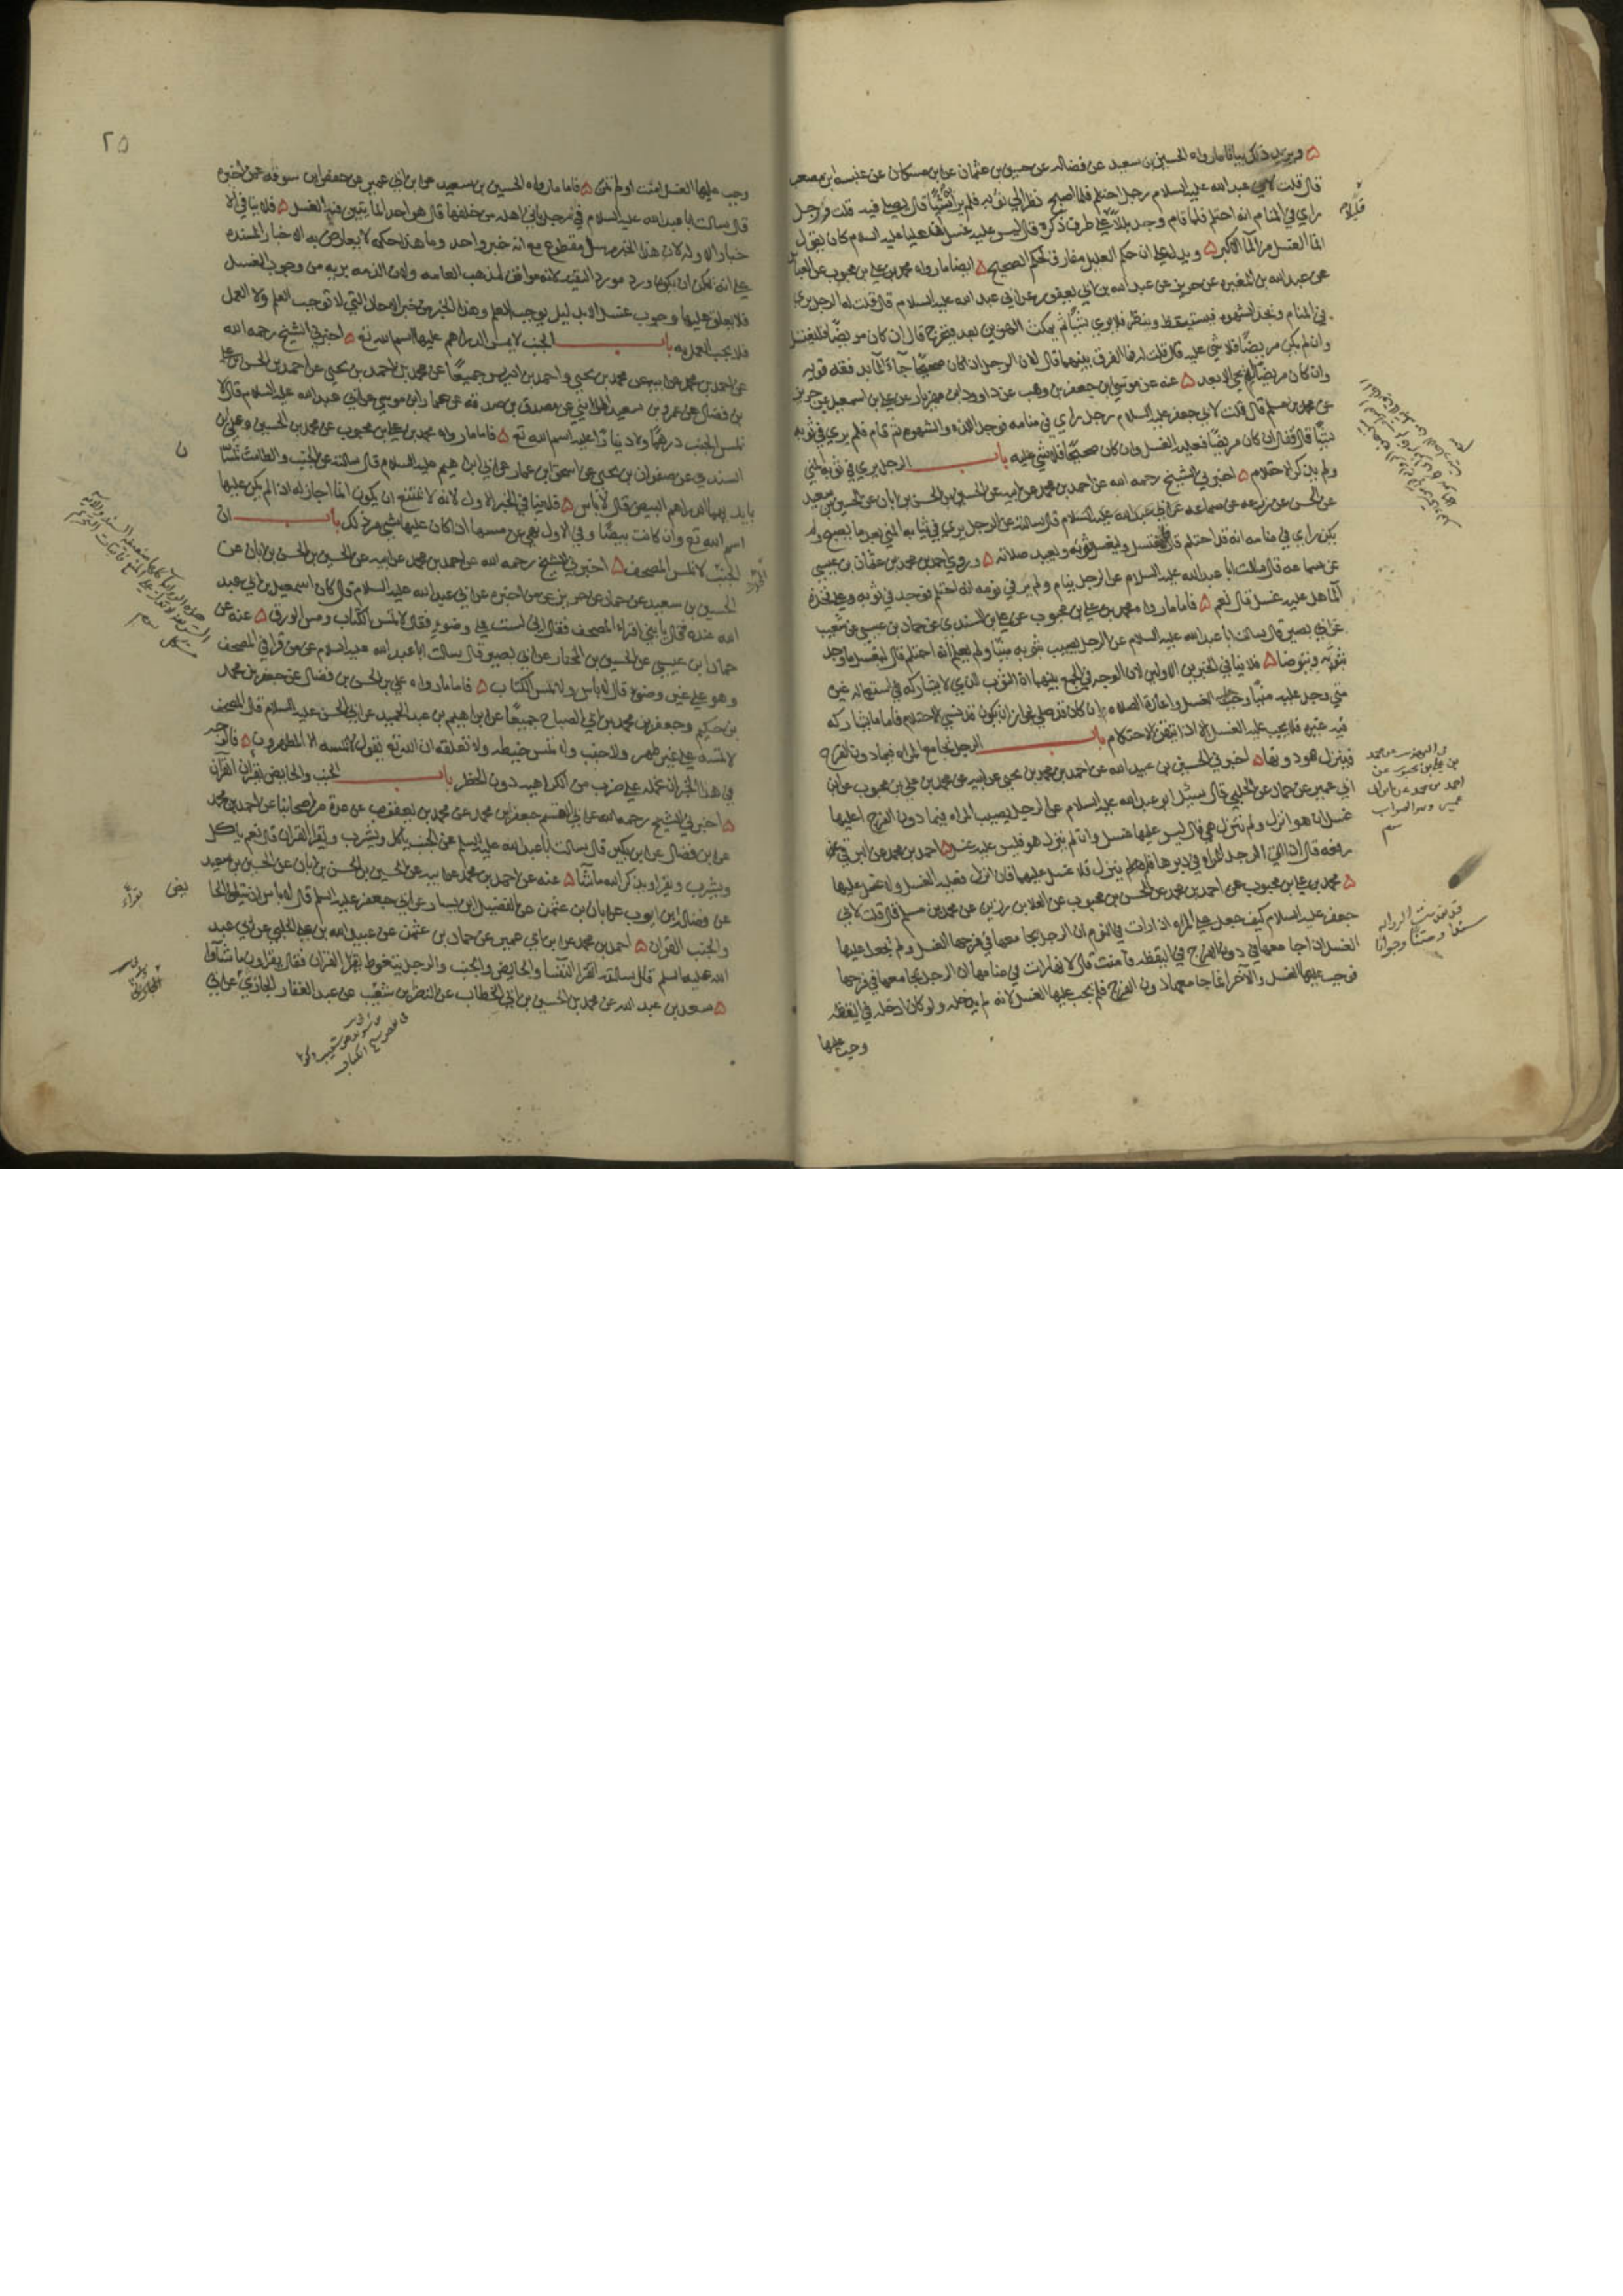 ويزيد ذلك بيانا ما رواه الحسين بن سعيد عن فضاله عن حسين بن عثمان عن ابن مسكان عن عنبسه ابن مصعب
قال قلت لابي عبد الله عليه السلام رجل احتلم فلما اصبح نظر الي ثوبه فلم ير شيئا قال يصلي فيه قلت فرجل
راي في المنام انه احتلم فلما قام وجد بللا علي طرف ذكره قال ليس عليه غسل ان عليا عليه السلام كان يقول
انما الغسل من الما الاكبر ويدل علي ان حكم العليل مفارق لحكم الصحيح ايضا ما رواه محمد بن علي بن محبوب عن العباس
عن عبد الله بن المغيره عن حريز عن عبد الله بن ابي يعفور عن ابي عبد الله عليه السلام قال قلت له الرجل يري
في المنام ويجد الشهوه فيستيقظ وينظر فلا يري شيئا ثم يمكث الهوين بعد فيخرج قال ان كان مريضا فليغتسل
وان لم يكن مريضا فلا شي عليه قال قلت له فما الفرق بينهما قال لان الرجل اذا كان صحيحا جاء الما بدفعه قويه
وان كان مريضا لم يجي الا بعد عنه عن موسي بن جعفر بن وهب عن داود بن مهزيار عن علي بن اسمعيل عن حريز
عن محمد بن مسلم قال قلت لابي جعفر عليه السلام رجل راي في منامه فوجد اللذه والشهوه ثم قام فلم يري في ثوبه
شيئا قال فقال ان كان مريضا فعليه الغسل وان كان صحيحا فلا شي عليه باب الرجل يري في ثوبه المني
ولم يذكر الاحتلام اخبرني الشيخ رحمه الله عن احمد بن محمد عن ابيه عن الحسين بن الحسن بن ابان عن الحسين بن سعيد
عن الحسن عن زرعه عن سماعه عن ابي عبد الله عليه السلام قال سالته عن الرجل يري في ثيابه المني بعد ما يصبح ولم
يكن راي في منامه انه قد احتلم قال فليغتسل وليغسل ثوبه ويعيد صلاته وروي احمد بن محمد بن عثمان بن عيسي
عن سماعه قال سالت ابا عبد الله عليه السلام عن الرجل ينام ولم ير في نومه انه احتلم فوجد في ثوبه وعلي فخذه
الما هل عليه غسل قال نعم فاما ما رواه محمد بن علي بن محبوب عن علي بن السندي عن حماد بن عيسي عن شعيب
عن ابي بصير قال سالت ابا عبد الله عليه السلام عن الرجل يصيب بثوبه منيا ولم يعلم انه احتلم قال ليغسل ما وجد
بثوبه ويتوضا فلا ينافي الخبرين الاولين لان الوجه في الجمع بينهما ان الثوب الذي لا يشاركه في استعماله غيره
متي وجد عليه منيا وجب الغسل واعادة الصلاه وان كان قد صلي لجواز ان يكون قد نسي الاحتلام فاما ما يشاركه
فيه غيره فلا يجب عليه الغسل الا اذا تيقن الاحتلام باب الرجل يجامع المراه فيما دون الفرج
فينزل هو دونها اخبرني الحسين بن عبيد الله عن احمد بن محمد بن يحيي عن ابيه عن محمد بن علي بن محبوب عن ابن
ابي عمير عن حماد عن الحلبي قال سئل ابو عبد الله عليه السلام عن الرجل يصيب المراه فيما دون الفرج اعليها
غسل ان هو انزل ولم تنزل هي قال ليس عليها غسل وان لم ينزل هو فليس عليه غسل احمد بن محمد عن البرقي
رفعه قال اذا اتي الرجل المراه في دبرها فلم ينزل فلا غسل عليهما فان انزل فعليه الغسل ولا غسل عليها
محمد بن علي بن محبوب عن احمد بن محمد عن الحسن بن محبوب عن العلا بن رزين عن محمد بن مسلم قال قلت لابي
جعفر عليه السلام كيف جعل علي المراه اذا رات في النوم ان الرجل يجامعها في فرجها الغسل ولم يجعل عليها
الغسل اذا جامعها في دون الفرج في اليقظه فامنت قال لانها رات في منامها ان الرجل يجامعها في فرجها
فوجب عليها الغسل والآخر انما جامعها دون الفرج فلم يجب عليها الغسل لانه لم يدخله ولو كان ادخله في اليقظه
وجب عليها
عن محمد
بن علي بن محبوب عن
احمد بن محمد عن ابن ابي
عمير وهو الصواب
٢٥
وجب عليها الغسل امنت او لم تمن فاما ما رواه الحسين بن سعيد عن ابن ابي عمير عن حفص ابن سوقه عمن اخبره
قال سالت ابا عبد الله عليه السلام في رجل ياتي اهله من خلفها قال هو احد الماتيين فيه الغسل فلا ينافي الا
خبار الاوله لان هذا الخبر مرسل مقطوع مع انه خبر واحد وما هذا حكمه لا يعارض به الاخبار المسنده
علي انه يمكن ان يكون ورد مورد التقيه لانه موافق لمذهب العامه ولان الذمه بريه من وجوب الغسل
فلا يعلق عليها وجوب غسل الا بدليل يوجب العلم وهذا الخبر من خبر الاحاد التي لا توجب العلم ولا العمل
فلا يجب العمل به باب الجنب لا يمس الدراهم عليها اسم الله تع اخبرني الشيخ رحمه الله
عن احمد بن محمد عن ابيه عن محمد بن يحيي واحمد بن ادريس جميعا عن محمد بن احمد بن يحيي عن احمد بن الحسن بن علي
بن فضال عن عمرو بن سعيد المدايني عن مصدق بن صدقه عن عمار ابن موسي عن ابي عبد الله عليه السلام قال لا
تمس الجنب درهما ولا دينارا عليه اسم الله تع فاما ما رواه محمد بن علي بن محبوب عن محمد بن الحسين وعلي بن
السندي عن صفوان بن يحيي عن اسحق بن عمار عن ابي ابراهيم عليه السلام قال سالته عن الجنب والطامث تمسان
بايديهما الدراهم البيض قال لا باس فلا ينافي الخبر الاول لانه لا يمتنع ان يكون انما اجاز له اذا لم يكن عليها
اسم الله تع وان كانت بيضا وفي الاول نهي عن مسها اذا كان عليها شي من ذلك باب ان
الجنب لا تمس المصحف اخبرني الشيخ رحمه الله عن احمد بن محمد عن ابيه عن الحسين بن الحسن بن ابان عن
الحسين بن سعيد عن حماد عن حريز عن من اخبره عن ابي عبد الله عليه السلام قال كان اسمعيل بن ابي عبد
الله عنده فقال يا بني اقراء المصحف فقال اني لست علي وضوء فقال لا تمس الكتاب ومس الورق عنه عن
حماد ابن عيسي عن الحسين بن المختار عن ابي بصير قال سالت ابا عبد الله عليه السلام عن من قرا في المصحف
وهو علي غير وضوء قال لا باس ولا تمس الكتاب فاما ما رواه علي بن الحسن بن فضال عن جعفر بن محمد
بن حكيم وجعفر بن محمد بن ابي الصباح جميعا عن ابراهيم بن عبد الحميد عن ابي الحسن عليه السلام قال المصحف
لا تمسه علي غير طهر ولا جنب ولا تمس خيطه ولا تعلقه ان الله تع يقول لا يمسه الا المطهرون فالوجه
في هذا الخبر ان نحمله علي ضرب من الكراهيه دون الحظر باب الجنب والحايض يقران القران
اخبرني الشيخ رحمه الله عن ابي القسم جعفر ابن محمد عن محمد بن يعقوب عن عدة من اصحابنا عن احمد بن محمد
عن ابن فضال عن ابن بكير قال سالت ابا عبد الله عليه السلم عن الجنب ياكل ويشرب ويقرا القران قال نعم ياكل
ويشرب ويقرا ويذكر الله ما شا عنه عن احمد بن محمد عن ابيه عن الحسين بن الحسن بن ابان عن الحسين بن سعيد
عن فضاله ابن ايوب عن ابان بن عثمن عن الفضيل ابن يسار عن ابي جعفر عليه السلم قال لا باس ان تتلوا الحا
والجنب القران احمد بن محمد عن ابن ابي عمير عن حماد بن عثمن عن عبيد الله بن علي الحلبي عن ابي عبد
الله عليه السلم قال سالته اتقرا النفسا والحايض والجنب والرجل يتغوط يقرا القران فقال يقراون ما شاوا
سعد بن عبد الله عن محمد بن الحسين بن ابي الخطاب عن النضر بن شعيب عن عبد الغفار الجازي عن ابي
يض